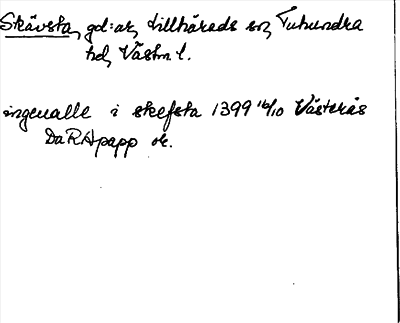 Skävsta, gd:ar, Lillhärads sn, Tuhundra
hd, Västm l.
ingeualle i skefsta 1399 16/10 Västerås
DaRApapp or.